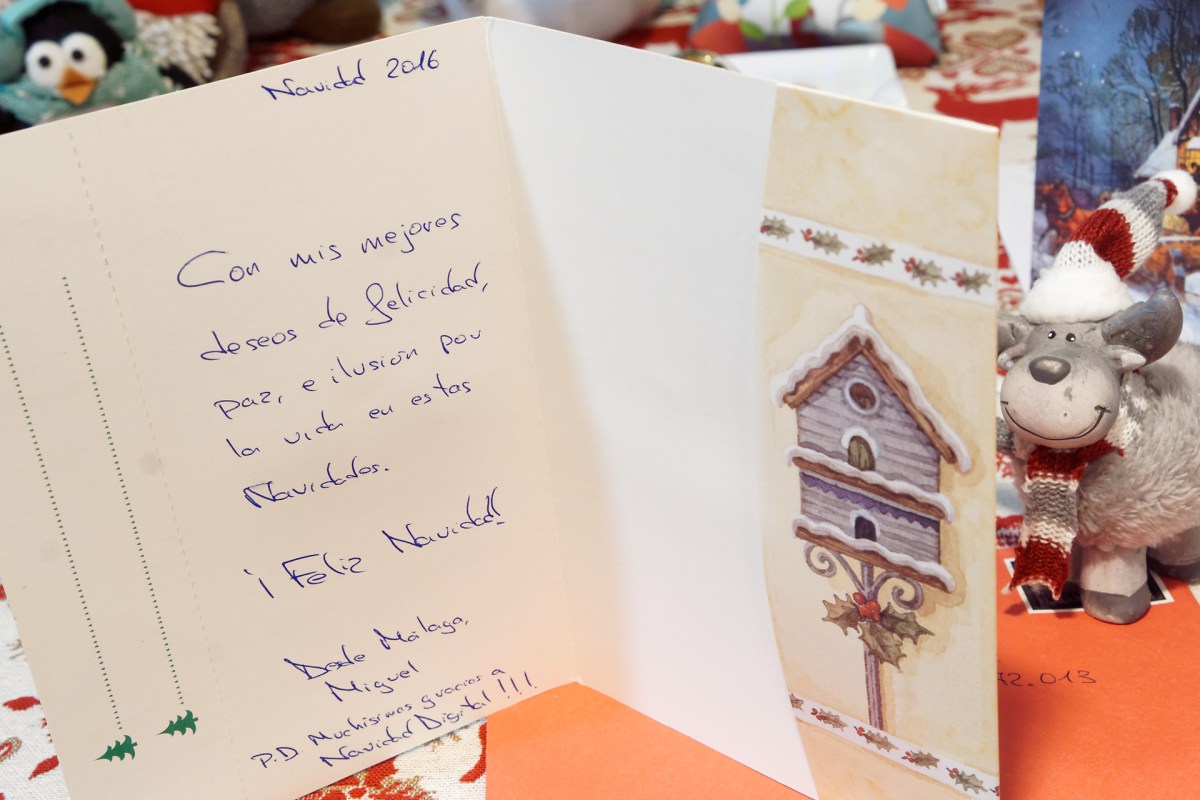 Navidad 2016
Con mis mejores
deseos de felicidad,
paz, e ilusión por
la vida en estas
Navidades.
¡Feliz Navidad!
Desde Málaga,
Miguel
P.D. Muchísimas gracias a
Navidad Digital!!!
72.013